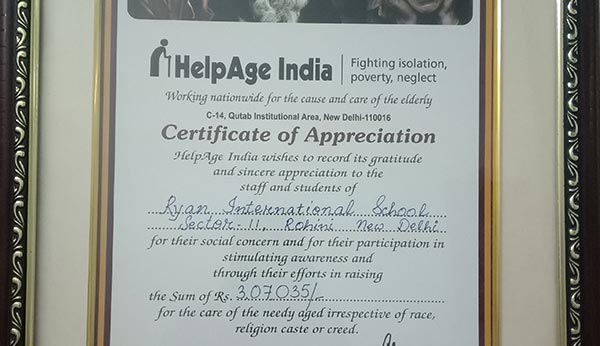 HelpAge India Fighting isolation,
poverty, neglect
Working nationwide for the cause and care of the elderly
C-14, Qutab Institutional Area, New Delhi-110016
Certificate of Appreciation
HelpAge India wishes to record its gratitude
and sincere appreciation to the
staff and students of
Ryan International School
Sector-11, Rohini New Delhi
for their social concern and for their participation in
stimulating awareness and
through their efforts in raising
the Sum of Rs. 307035/-
for the care of the needy aged irrespective of race,
religion caste or creed.